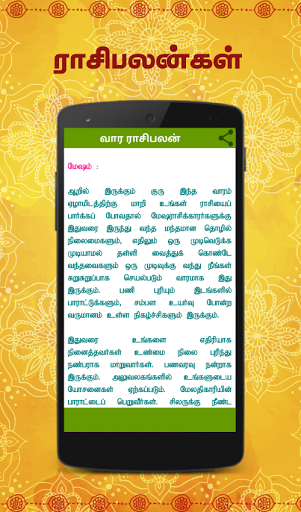 ராசிபலன்கள்
வார ராசிபலன்
மேஷம் :
ஆறில் இருக்கும் குரு இந்த வாரம்
ஏழாமிடத்திற்கு மாறி உங்கள் ராசியைப்
பார்க்கப் போவதால் மேஷராசிக்காரர்களுக்கு
இதுவரை இருந்து வந்த மந்தமான தொழில்
நிலைமைகளும், எதிலும் ஒரு முடிவெடுக்க
முடியாமல் தள்ளி வைத்துக் கொண்டே
வந்தவைகளும் ஒரு முடிவுக்கு வந்து நீங்கள்
சுறுசுறுப்பாக செயல்படும் வாரமாக இது
இருக்கும். பணி புரியும் இடங்களில்
பாராட்டுக்களும், சம்பள உயர்வு போன்ற
வருமானம் உள்ள நிகழ்ச்சிகளும் இருக்கும்.
இதுவரை உங்களை எதிரியாக
நினைத்தவர்கள் உண்மை நிலை புரிந்து
நண்பராக மாறுவார்கள். பணவரவு நன்றாக
இருக்கும். அலுவலகங்களில் உங்களுடைய
யோசனைகள் ஏற்கப்படும். மேலதிகாரியின்
பாராட்டைப் பெறுவீர்கள். சிலருக்கு நீண்ட